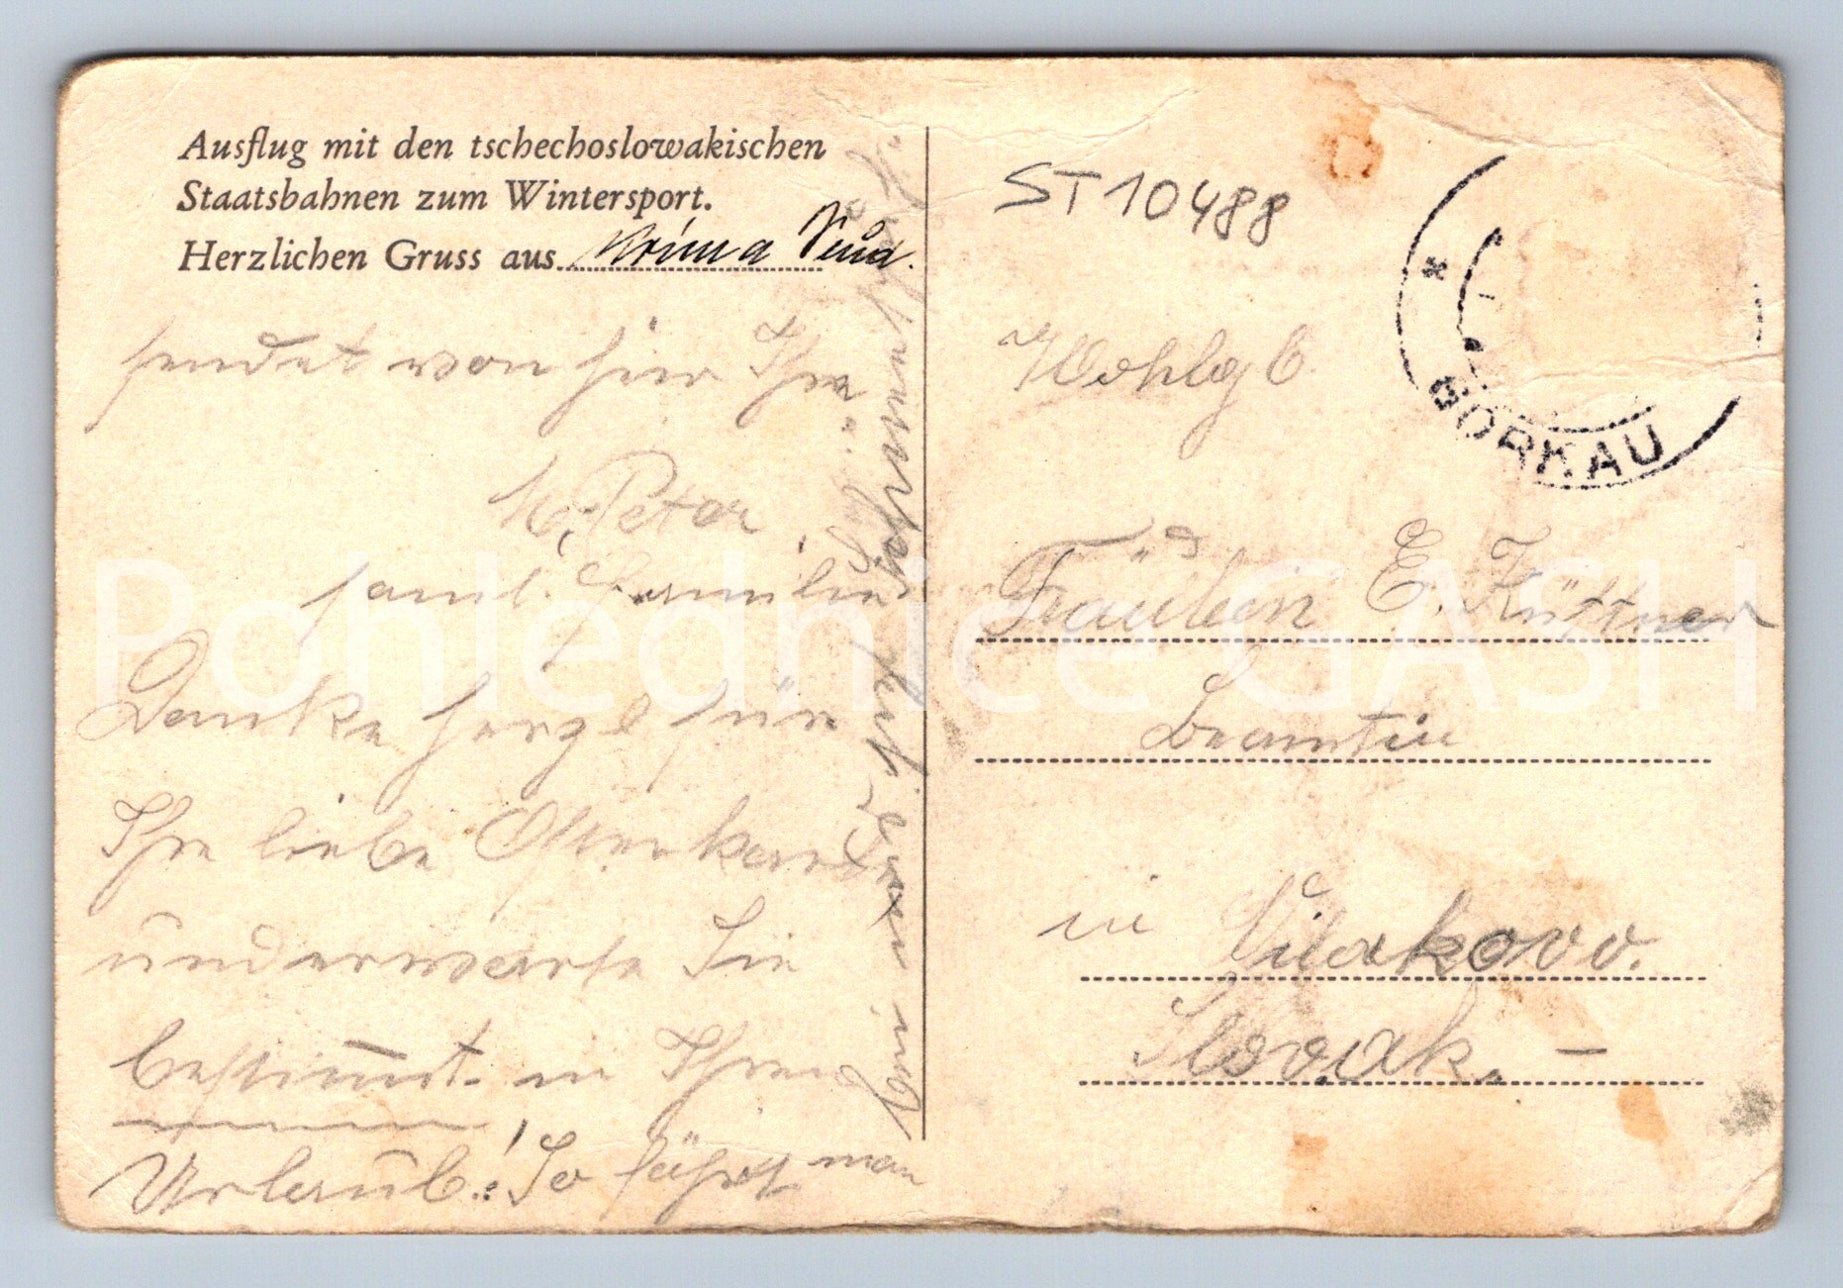 Ausflug mit den tschechoslowakischen
Staatsbahnen zum Wintersport.
Herzlichen Gruss aus
sendet von hier Ihre
Peter
samt Familie
Danke herzl für
Ihre liebe Osterkarte
und erwarte Sie
bestimmt in Ihren
Urlaub! So fährt man
ST 10488
GÖRKAU
Wohlgb.
Fräulein E. Küttner
Beamtin
in Filakovo.
Slovak. —
Pohlednice GASH